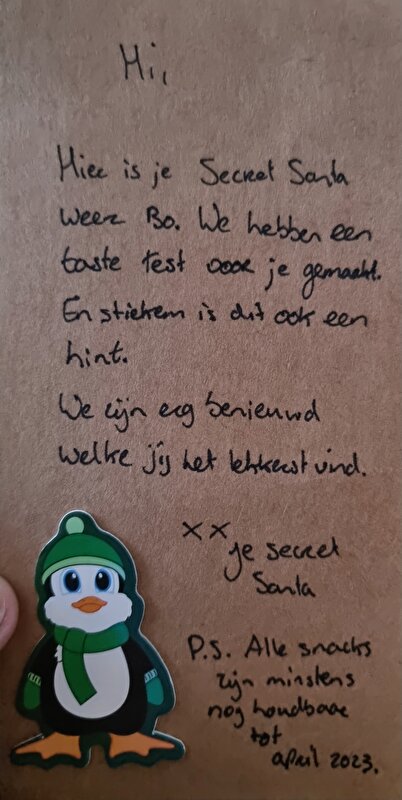 Hii,
Hier is je Secret Santa
weer Bo. We hebben een
taste test voor je gemaakt.
En stiekem is dit ook een
hint.
We zijn erg benieuwd
welke jij het lekkerst vind.
xx
je secret
Santa
P.S. Alle snacks
zijn minstens
nog houdbaar
tot
april 2023.